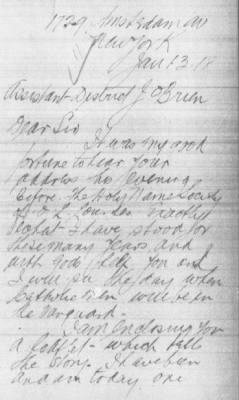 1729 Amsterdam av
New York
Jan 13 - 18
Assistant District J O'Brien
Dear Sir
It was my good
fortune to hear your
address the evening
before. The Holy Name Society
of Lourdes exactly
what I have stood for
these many years and
with gods help you and
I will see the day when
Catholic Men will be in
the Vanguard.
I am Enclosing you
a leaflet - which tells
the story. I have been
and am today one